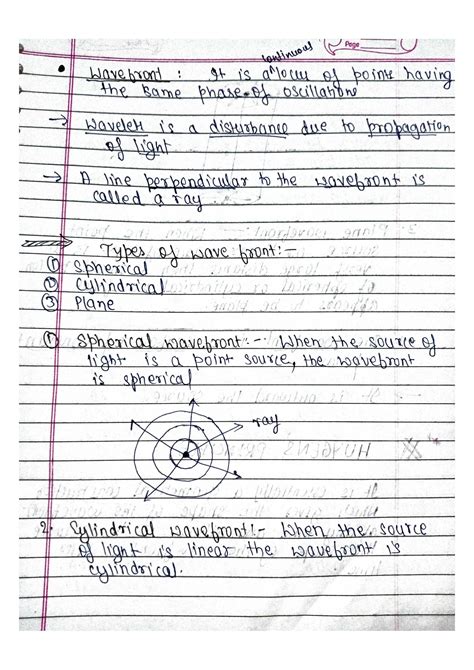 Page
continuous
• Wavefront : It is a ^ locus of points having
the same phase of oscillations
→ Wavelets is a disturbance due to propagation
of light
→ A line perpendicular to the wavefront is
called a ray
⇒ Types of wave front:-
① Spherical
② Cylindrical
③ Plane
① Spherical wavefront:- When the source of
light is a point source, the wavefront
is spherical
ray
2. Cylindrical wavefront:- When the source
of light is linear the wavefront is
cylindrical.